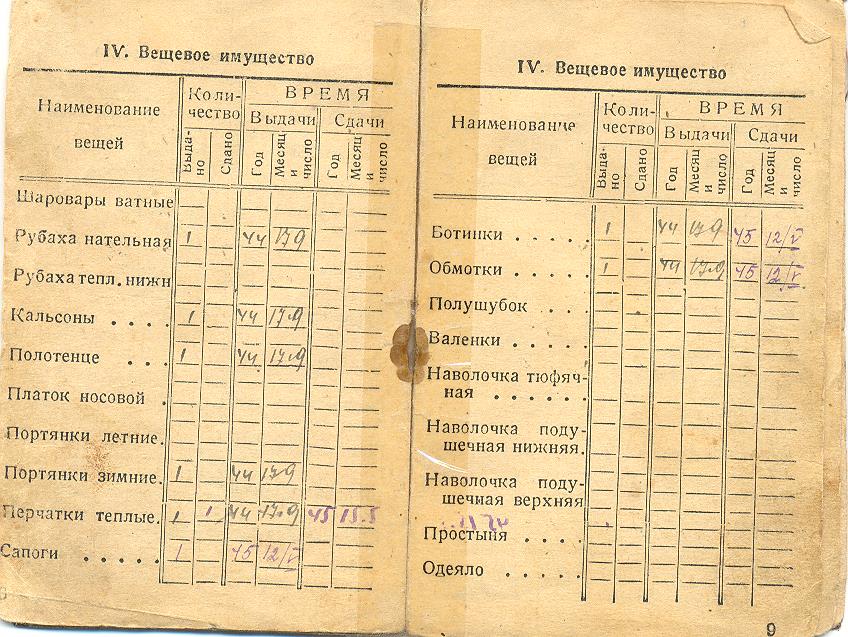 IV. Вещевое имущество
Наименование вещей
Количество
ВРЕМЯ
Выдачи
Сдачи
Выдано
Сдано
Год
Месяц и число
Год
Месяц и число
Шаровары ватные
Рубаха нательная 1 44 17.9
Рубаха тепл. нижн
Кальсоны . . . . 1 44 17.9
Полотенце . . . 1 44 17.9
Платок носовой .
Портянки летние.
Портянки зимние. 1 44 17.9
Перчатки теплые. 1 1 44 17.9 45 15.5
Сапоги . . . . . 1 45 12/V
IV. Вещевое имущество
Наименование вещей
Количество
ВРЕМЯ
Выдачи
Сдачи
Выдано
Сдано
Год
Месяц и число
Год
Месяц и число
Ботинки . . . . . 1 44 17.9 45 12/V
Обмотки . . . . . 1 44 17.9 45 12/V
Полушубок . . .
Валенки . . . .
Наволочка тюфяч-
ная . . . . . .
Наволочка поду-
шечная нижняя.
Наволочка поду-
шечная верхняя
Простыня . . . .
Одеяло . . . . .
9